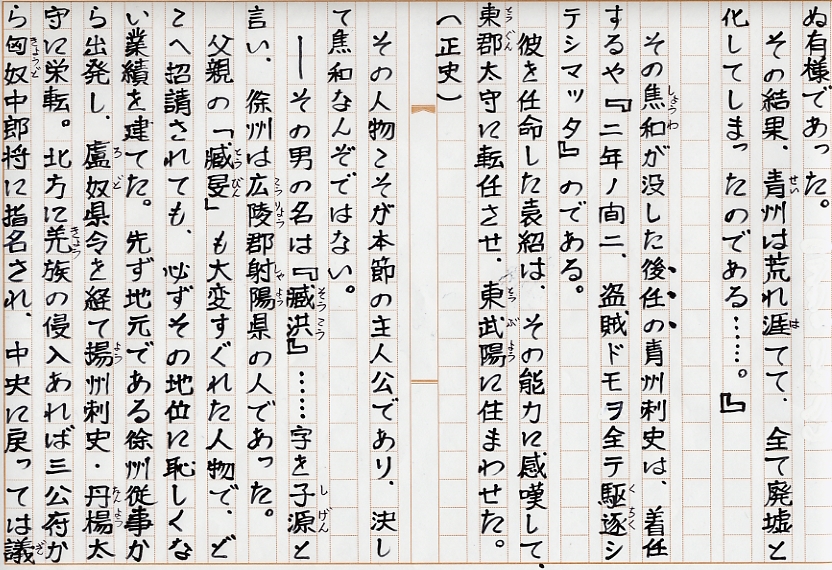 ぬ有様であった。
その結果、青州は荒れ涯てて、全て廃墟と
化してしまったのである……。』
その焦和が没した後任の青州刺史は、着任
するや『二年ノ間ニ、盗賊ドモヲ全テ駆逐シ
テシマッタ』のである。
彼を任命した袁紹は、その能力に感嘆して、
東郡太守に転任させ、東武陽に住まわせた。
(正史)
その人物こそが本節の主人公であり、決し
て焦和なんぞではない。
──その男の名は『臧洪』……字を子源と
言い、徐州は広陵郡射陽県の人であった。
父親の「臧旻」も大変すぐれた人物で、ど
こへ招請されても、必ずその地位に恥しくな
い業績を建てた。先ず地元である徐州従事か
ら出発し、盧奴県令を経て揚州刺史・丹楊太
守に栄転。北方に羌族の侵入あれば三公府か
ら匈奴中郎将に指名され、中央に戻っては議